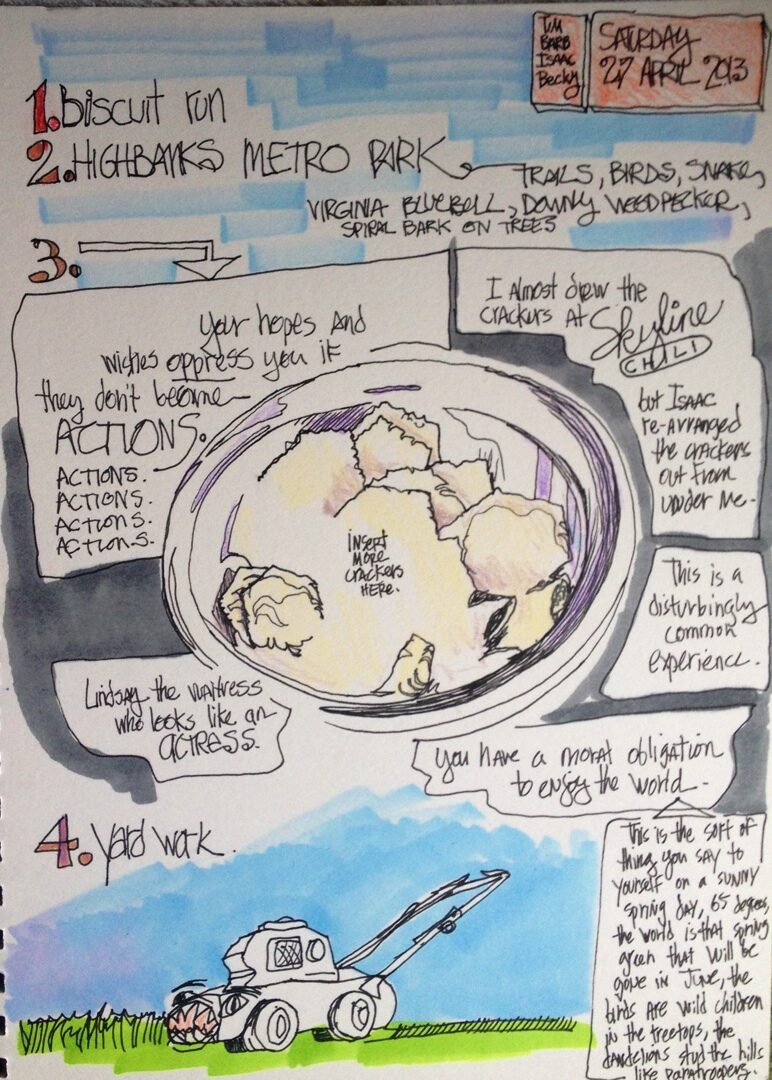 TIM
BARB
ISAAC
Becky
SATURDAY
27 APRIL 2013
1. Biscuit run
2. HIGHBANKS METRO PARK
TRAILS, BIRDS, SNAKE,
VIRGINIA BLUEBELL, DOWNY WOODPECKER,
SPIRAL BARK ON TREES
3.
Your hopes and
wishes oppress you if
they don't become
ACTIONS.
ACTIONS.
ACTIONS.
ACTIONS.
ACTIONS.
I Almost drew the
crackers At Skyline
CHILI
but ISAAC
re-arranged
the crackers
out from
under me.
INSERT
MORE
CRACKERS
HERE.
This is a
disturbingly
common
experience.
Lindsay the waitress
who looks like an
ACTRESS.
You have a moral obligation
to enjoy the world.
4. Yard work.
This is the sort of
thing you say to
yourself on a sunny
spring day, 65 degrees,
the world is that spring
green that will be
gone in June, the
birds are wild children
in the treetops, the
dandelions stud the hills
like paratroopers.